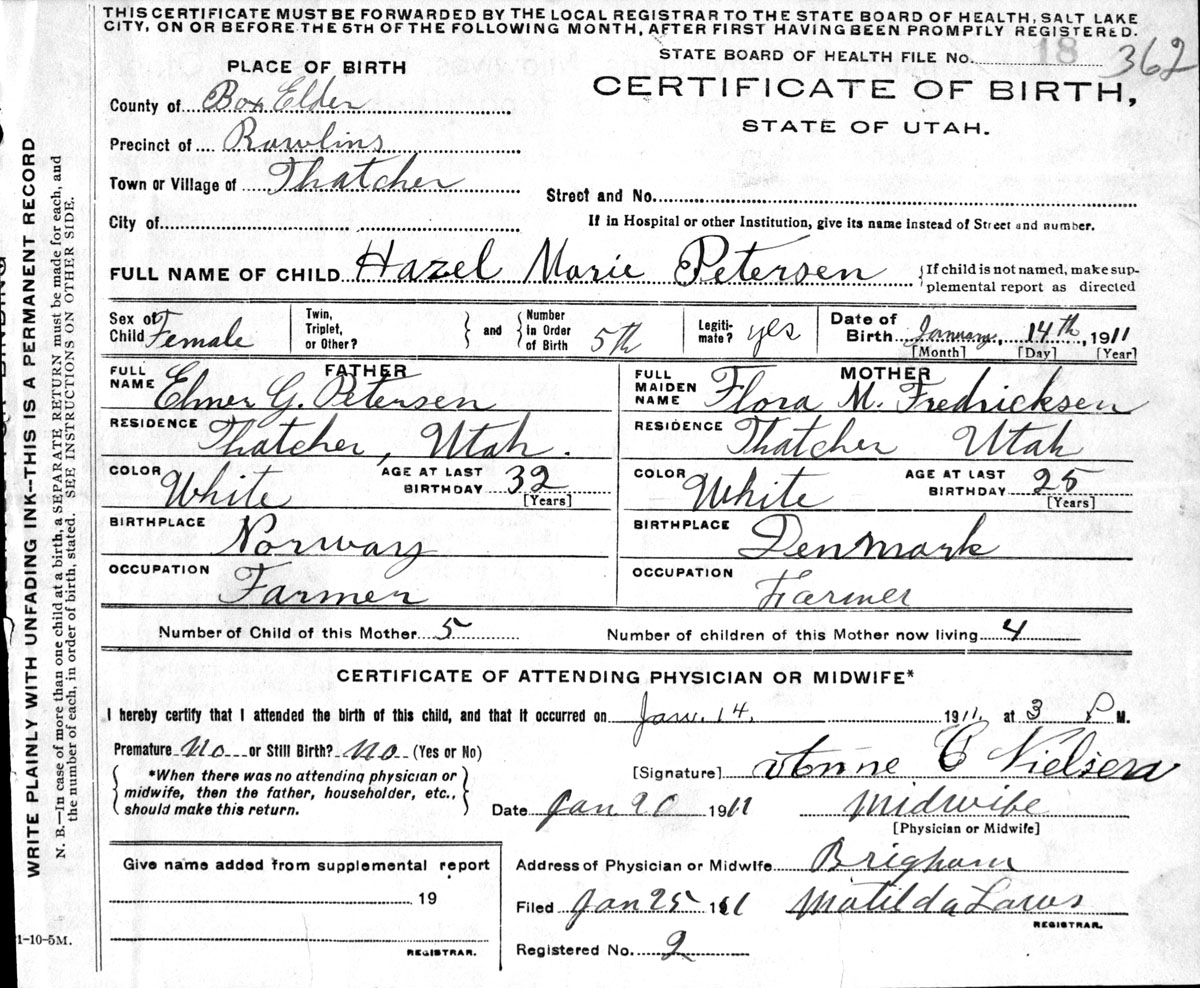 THIS CERTIFICATE MUST BE FORWARDED BY THE LOCAL REGISTRAR TO THE STATE BOARD OF HEALTH, SALT LAKE
CITY, ON OR BEFORE THE 5TH OF THE FOLLOWING MONTH, AFTER FIRST HAVING BEEN PROMPTLY REGISTERED.
STATE BOARD OF HEALTH FILE No. 18 362
PLACE OF BIRTH
CERTIFICATE OF BIRTH,
STATE OF UTAH.
County of Box Elder
Precinct of Rawlins
Town or Village of Thatcher
Street and No.
City of
If in Hospital or other Institution, give its name instead of Street and number.
FULL NAME OF CHILD Hazel Marie Petersen {If child is not named, make sup-
plemental report as directed
Sex of Child Female
Twin, Triplet, or Other? } and { Number in Order of Birth 5th
Legiti-mate? yes
Date of Birth January, 14th, 1911
[Month] [Day] [Year]
FATHER
FULL NAME Elmer G. Petersen
RESIDENCE Thatcher, Utah.
COLOR White AGE AT LAST BIRTHDAY 32
[Years]
BIRTHPLACE Norway
OCCUPATION Farmer
MOTHER
FULL MAIDEN NAME Flora M. Fredricksen
RESIDENCE Thatcher Utah
COLOR White AGE AT LAST BIRTHDAY 25
[Years]
BIRTHPLACE Denmark
OCCUPATION Farmer
Number of Child of this Mother 5 Number of children of this Mother now living 4
CERTIFICATE OF ATTENDING PHYSICIAN OR MIDWIFE*
I hereby certify that I attended the birth of this child, and that it occurred on Jan. 14. 1911, at 3 P M.
Premature No or Still Birth? No (Yes or No)
{ *When there was no attending physician or
midwife, then the father, householder, etc.,
should make this return. }
[Signature] Anne C Nielsen
Date Jan 20 1911 Midwife
[Physician or Midwife]
Give name added from supplemental report
19
REGISTRAR.
Address of Physician or Midwife Brigham
Filed Jan 25 1911 Matilda Laws
REGISTRAR.
Registered No. 2
WRITE PLAINLY WITH UNFADING INK--THIS IS A PERMANENT RECORD
N. B.—In case of more than one child at a birth, a SEPARATE RETURN must be made for each, and
the number of each, in order of birth, stated. SEE INSTRUCTIONS ON OTHER SIDE.
1-10-5M.